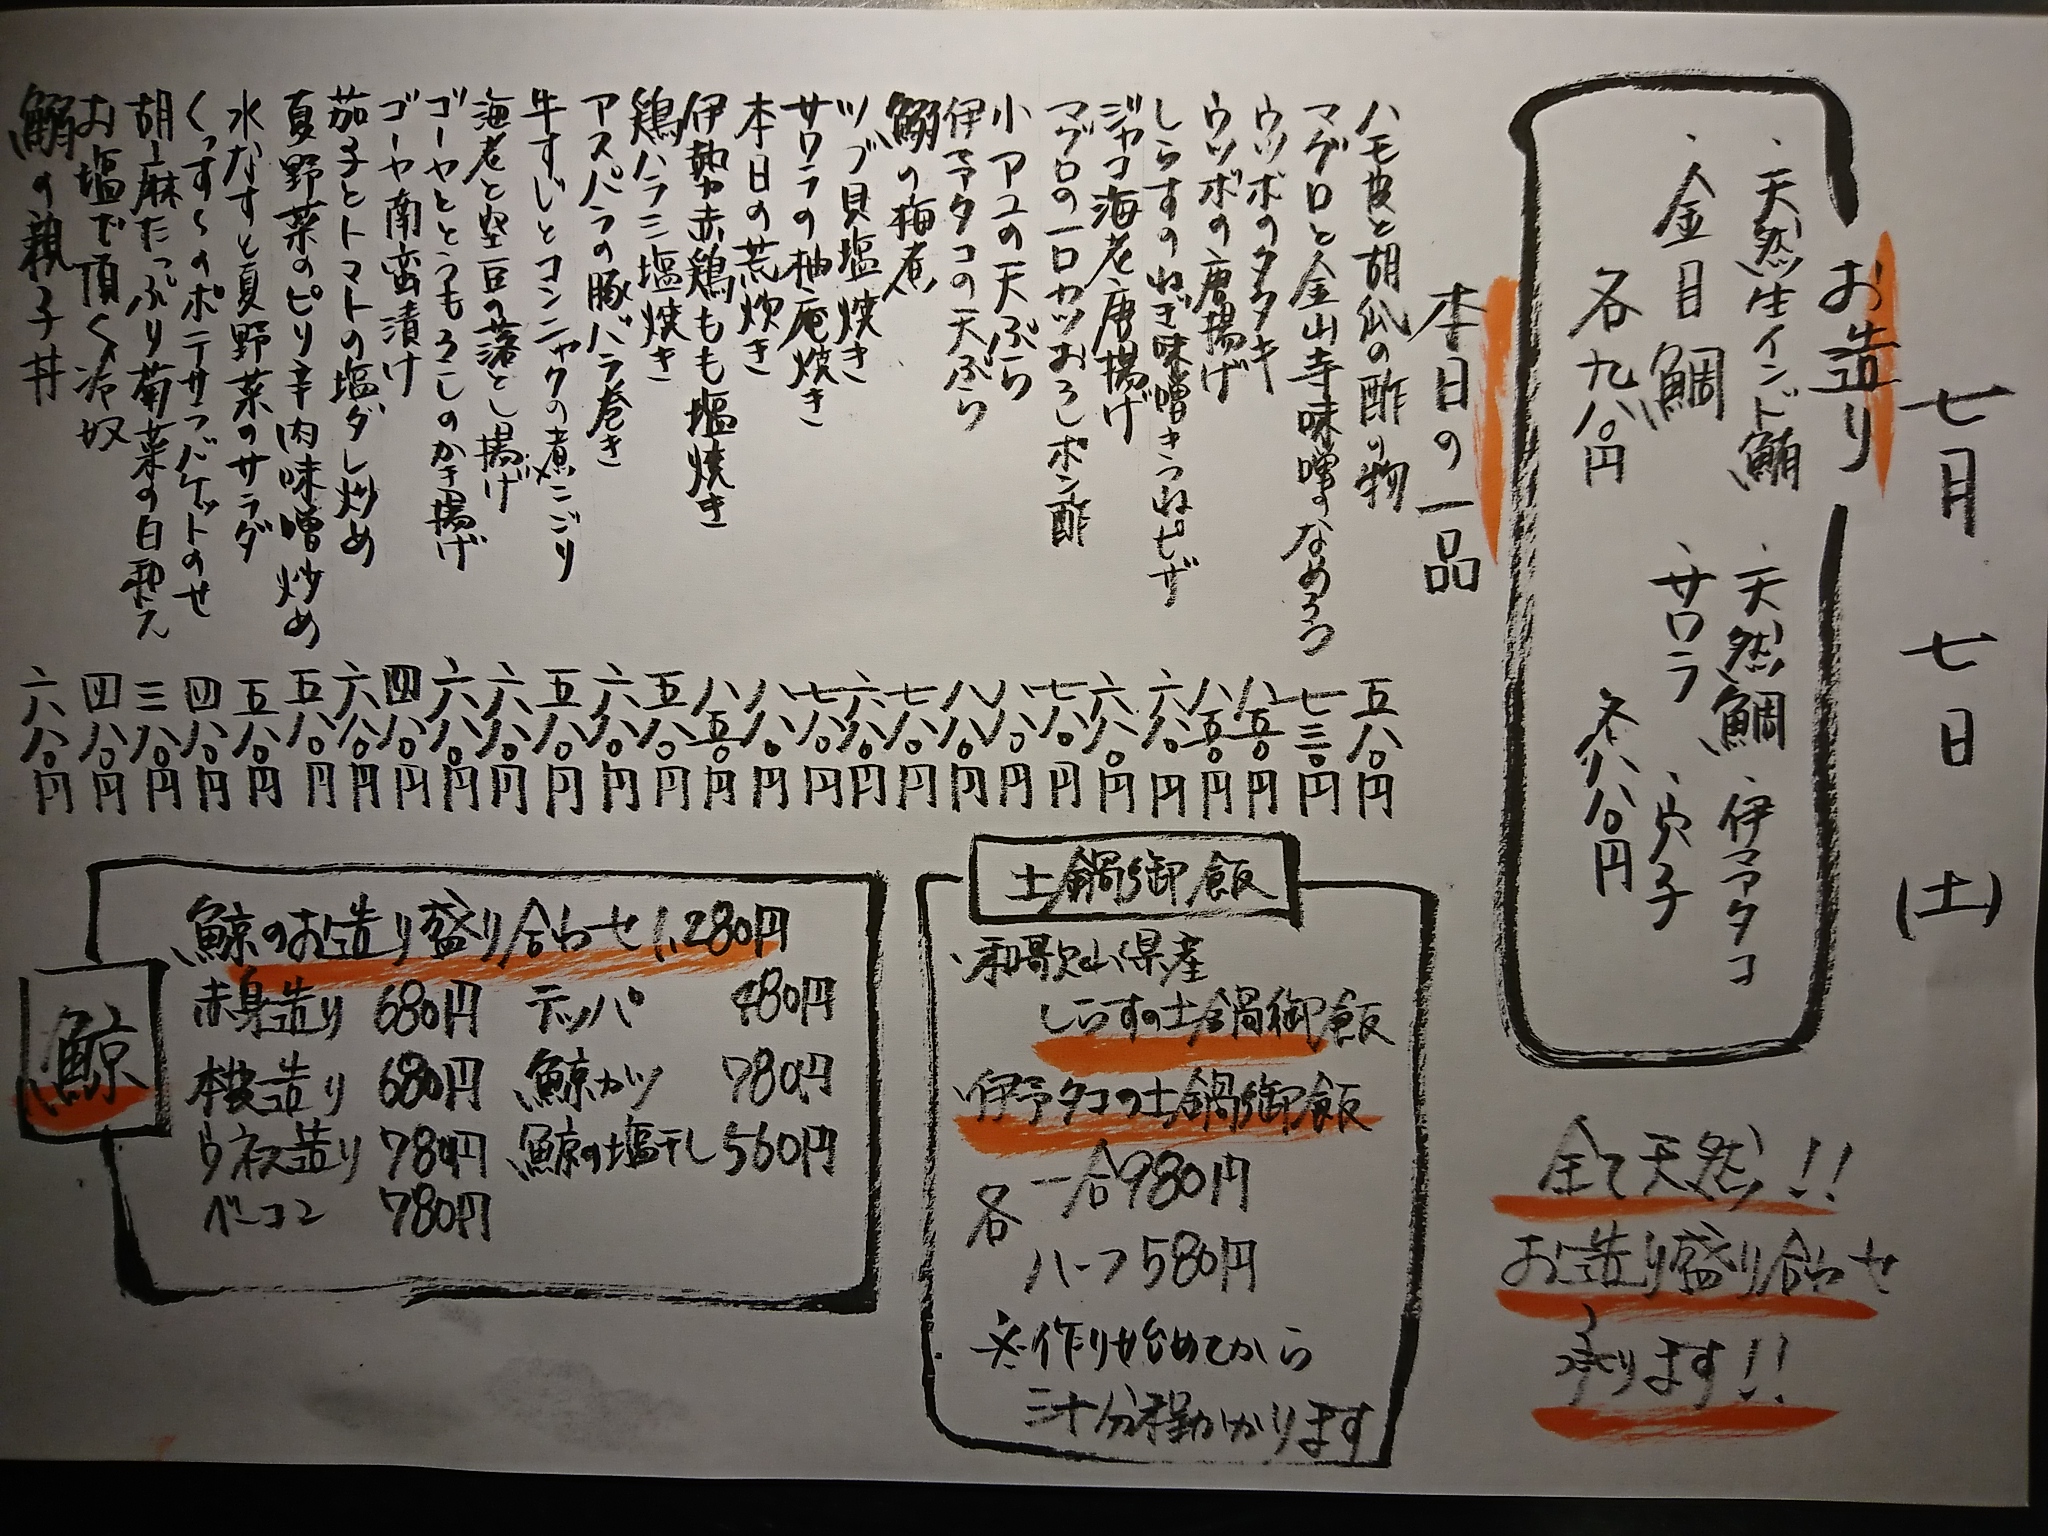 七月 七日 (土)
お造り
・天然生インド鮪 ・天然鯛 ・伊予タコ
・金目鯛 ・サワラ ・穴子
各九八〇円 各八八〇円
全て天然!!
お造り盛り合わせ
承ります!!
本日の一品
ハモ皮と胡瓜の酢の物 五八〇円
マグロと金山寺味噌のなめろう 七三〇円
ウツボのタタキ 八五〇円
ウツボの唐揚げ 八五〇円
しらすのねぎ味噌きつねピザ 六八〇円
ジャコ海老唐揚げ 六八〇円
マグロの一口カツおろしポン酢 七八〇円
小アユの天ぷら 八八〇円
伊予タコの天ぷら 八八〇円
鰯の梅煮 七八〇円
ツブ貝塩焼き 六八〇円
サワラの柚庵焼き 七八〇円
本日の荒炊き 八八〇円
伊勢赤鶏もも塩焼き 八五〇円
鶏ハラミ塩焼き 五八〇円
アスパラの豚バラ巻き 六八〇円
牛すじとコンニャクの煮こごり 五八〇円
海老と空豆の落とし揚げ 六八〇円
ゴーヤととうもろこしのかき揚げ 六八〇円
ゴーヤ南蛮漬け 四八〇円
茄子とトマトの塩ダレ炒め 六八〇円
夏野菜のピリ辛肉味噌炒め 五八〇円
水なすと夏野菜のサラダ 五八〇円
くっすーのポテサラバケットのせ 四八〇円
胡麻たっぷり菊菜の白和え 三八〇円
お塩で頂く冷奴 四八〇円
鰯の親子丼 六八〇円
土鍋御飯
・和歌山県産
しらすの土鍋御飯
・伊予タコの土鍋御飯
各 一合980円
ハーフ580円
※作り始めてから
三十分程かかります
鯨
鯨のお造り盛り合わせ 1,280円
赤身造り 680円 テッパ 480円
本皮造り 680円 鯨カツ 780円
ウネス造り 780円 鯨の塩干し 560円
ベーコン 780円